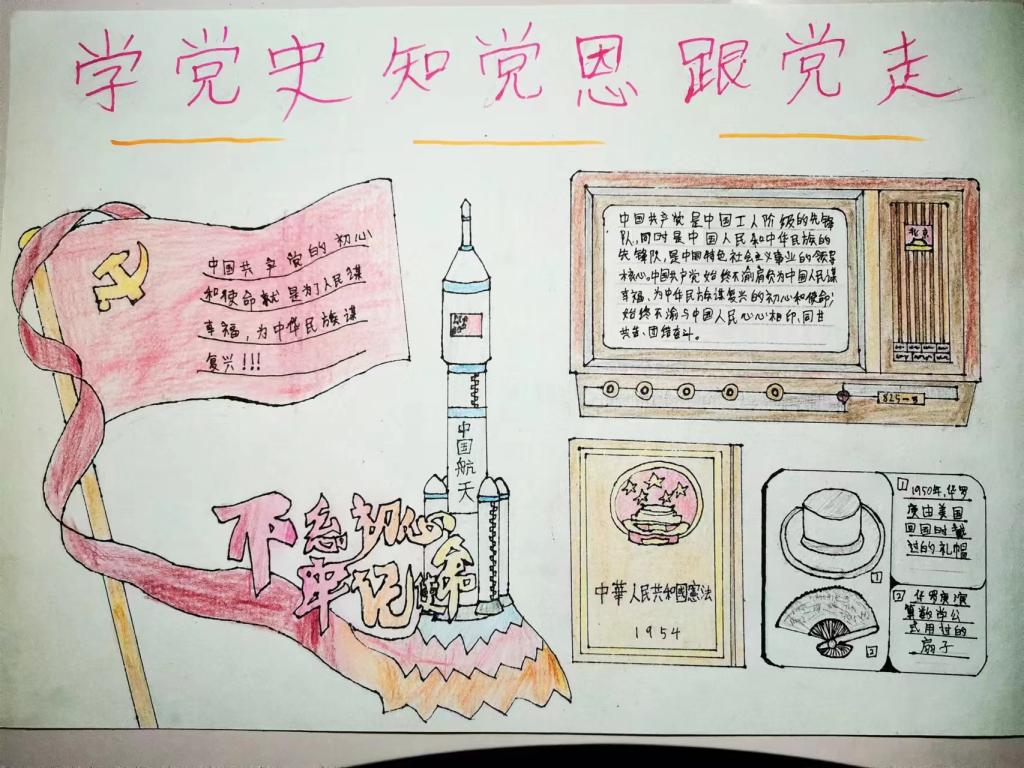 学党史 知党恩 跟党走
中国共产党的初心
和使命就是为了人民谋
幸福,为中华民族谋
复兴!!!
中国航天
不忘初心
牢记使命
中国共产党是中国工人阶级的先锋
队,同时是中国人民和中华民族的
先锋队,是中国特色社会主义事业的领导
核心。中国共产党始终不渝肩负为中国人民谋
幸福、为中华民族谋复兴的初心和使命;
始终不渝与中国人民心心相印、同甘
共苦、团结奋斗。
北京
825-3
中華人民共和國憲法
1954
1
2
1 1950年,华罗
庚由美国
回国时戴
过的礼帽
2 华罗庚演
算数学公
式用过的
扇子